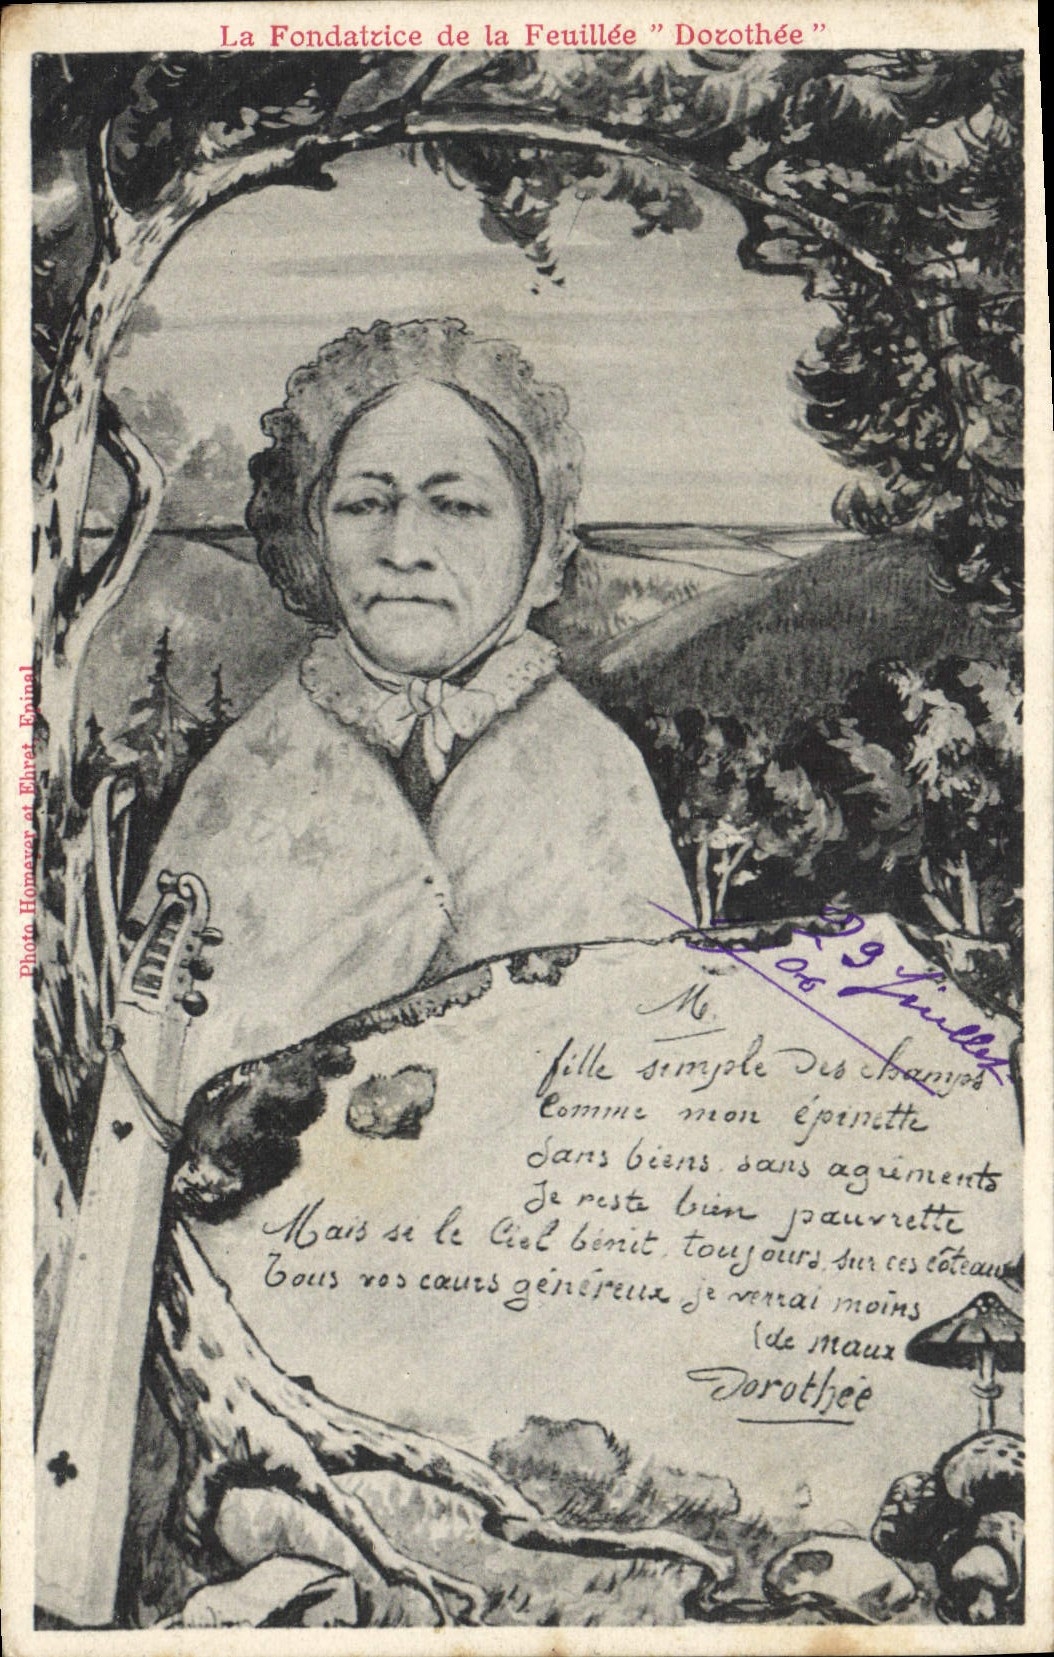 La Fondatrice de la Feuillée " Dorothée "
Photo Homeyer et Ehret, Epinal
29 Juillet
M.
fille simple des champs
Comme mon épinette
Sans biens, sans agréments
Je reste bien pauvrette
Mais si le Ciel bénit, toujours, sur ces côteaux
Tous vos cœurs généreux, je verrai moins
(de maux
Dorothée